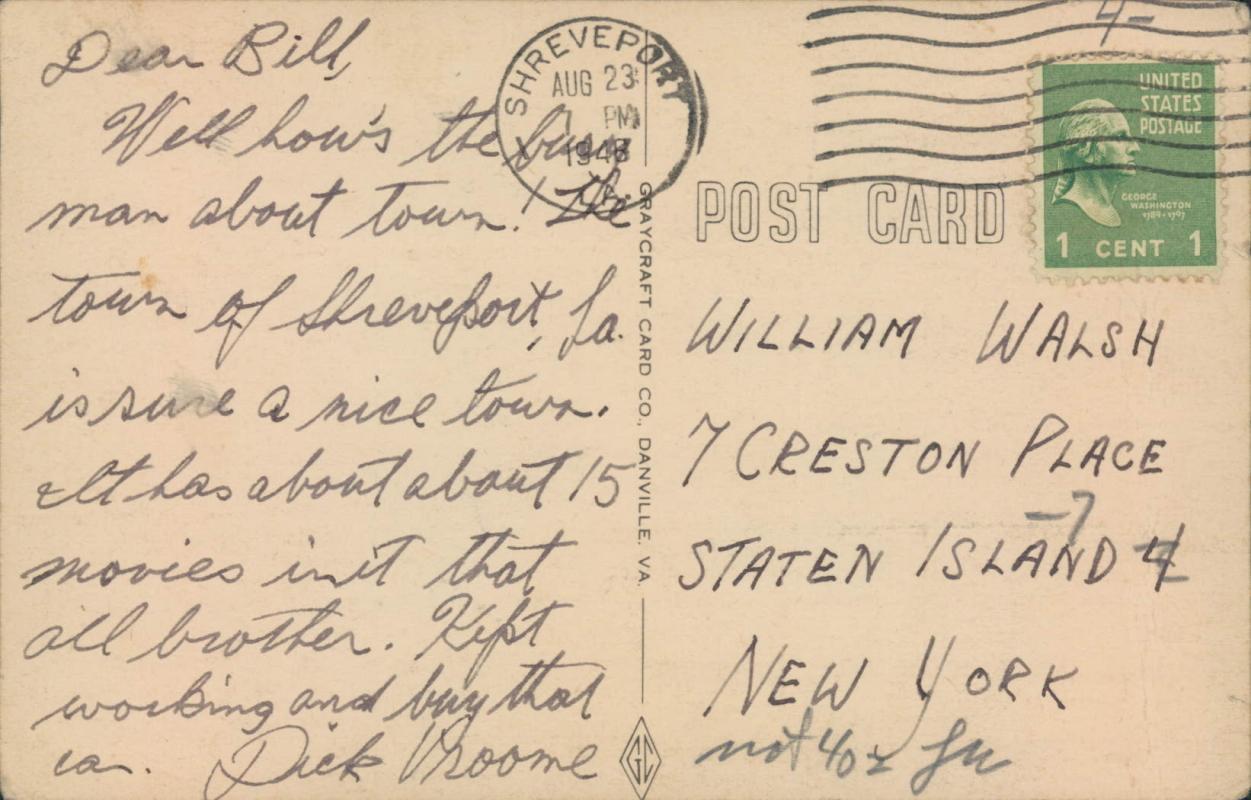 Dear Bill,
Well how's the busy
man about town! The
town of Shreveport, La.
is sure a nice town.
It has about about 15
movies in it that
all brother. Kept
working and buy that
car. Dick Broome
SHREVEPORT
AUG 23
PM
1948
4-
UNITED
STATES
POSTAGE
GEORGE
WASHINGTON
1789-1797
1 CENT 1
POST CARD
GRAYCRAFT CARD CO., DANVILLE, VA.
GC
WILLIAM WALSH
7 CRESTON PLACE
-7
STATEN ISLAND 4
NEW YORK
not 4 or